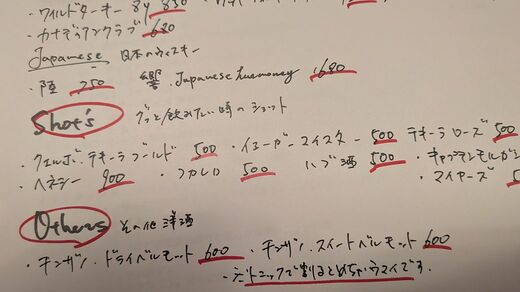 ・ワイルドターキー 8y 850
・カナディアンクラブ 680
Japanese 日本のウイスキー
・陸 750 響 Japanese harmoney 1680
Shot's グッと飲みたい時のショット
・クエルボ・テキーラゴールド 500 ・イエーガーマイスター 500 テキーラローズ 500
・ヘネシー 900 ・フカレロ 500 ハブ酒 500 ・キャプテンモルガン
・マイヤーズ
Others その他洋酒
・チンザノ・ドライベルモット 600 ・チンザノ・スイートベルモット 600
で割るとめちゃウマイです。